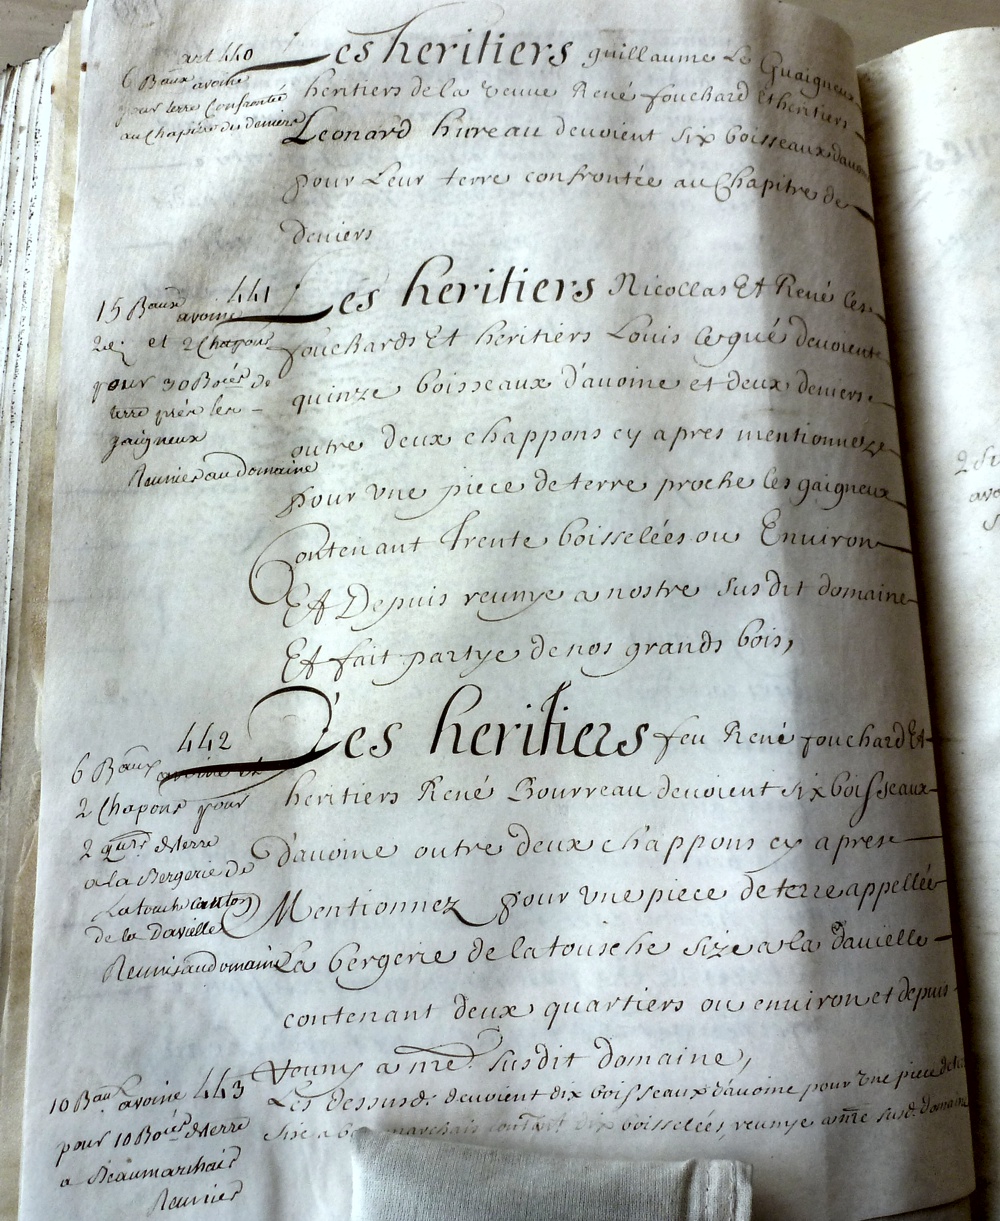 art 440
6 Baux avoine
pour terre Confrontée
au Chapitre de deniers
Les heritiers guillaume Le Guaigneux
heritiers de la veuue René fouchard Et heritiers
Leonard hureau deuoient six boisseaux dauoine
pour Leur terre confrontée au Chapitre de
deniers
441
15 Baux avoine
2d et 2 Chapons
pour 30 Boées de
terre prés les
gaigneux
Reunies au domaine
Les heritiers Nicollas Et René les
fouchards Et heritiers Louis legué deuoient
quinze boisseaux d'auoine et deux deniers
outre deux chappons cy apres mentionnez
pour vne piece de terre proche les gaigneux
Contenant trente boisselées ou Environ
Et Depuis reunye a nostre susdit domaine
Et fait partye de nos grands bois,
442
6 Baux avoine et
2 Chapons pour
2 quers de terre
a la Bergerie de
La touche canton
de la Davielle
Reunis au domaine
Les heritiers feu René fouchard Et
heritiers René Bourreau deuoient six boisseaux
d'auoine outre deux chappons cy apres
Mentionnez pour vne piece de terre appellée
La bergerie de la tousche size a la dauielle
contenant deux quartiers ou environ et depuis
reuny a nre susdit domaine,
443
10 Baux avoine
pour 10 Boées de terre
a Beaumarchais
Reunies
Les dessusd. deuoient dix boisseaux d'auoine pour vne piece de terre
sise a marchais content. dix boisselées, reunye a nre susd. domaine